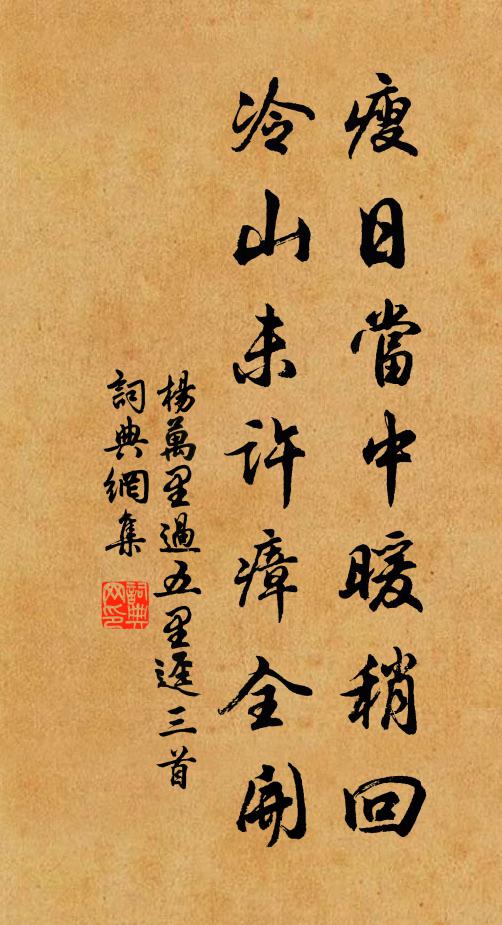 瘦日當中暖稍回
冷山未許瘴全開
楊萬里過五里逕三首
詞典網集
詞典
网印